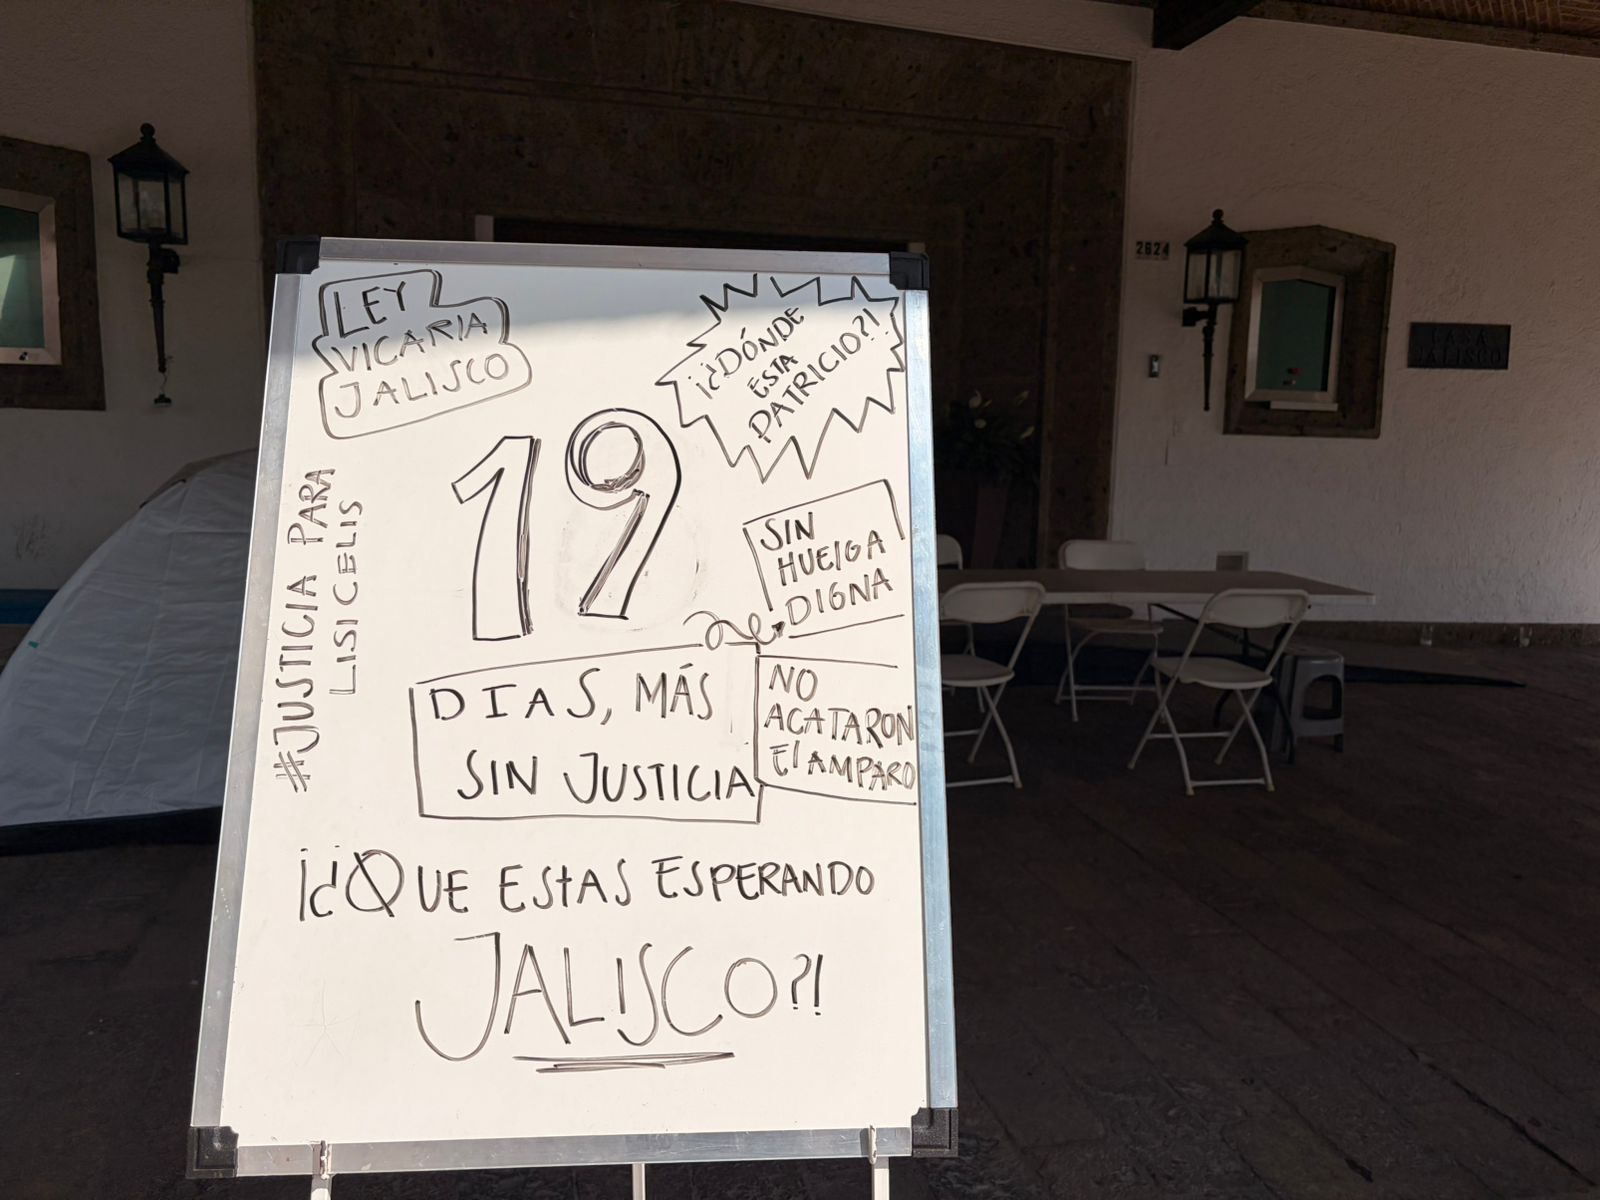 LEY
VICARIA
JALISCO
¡¿DÓNDE
ESTA
PATRICIO?!
19
#JUSTICIA PARA
LISI CELIS
SIN
HUElGA
DIGNA
DIAS, MÁS
SIN JUSTICIA
NO
ACATARON
El AMPARO
¡¿QUE ESTAS ESPERANDO
JALISCO?!
2624
CASA
JALISCO